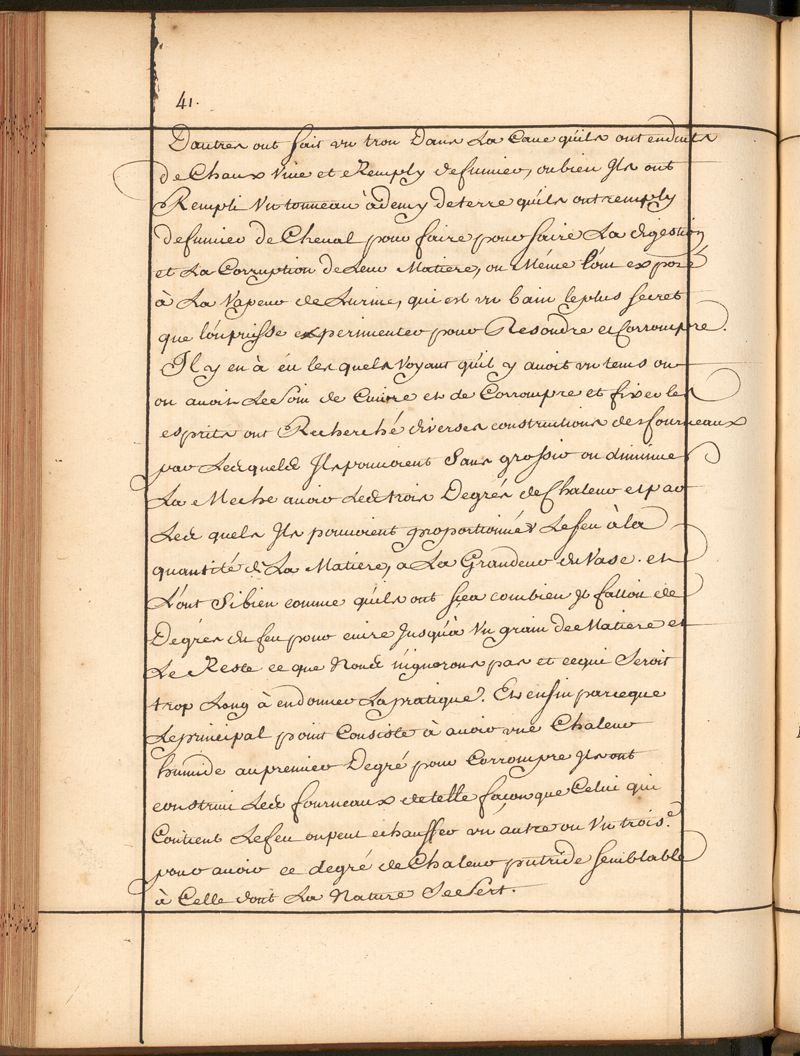 41.
Dautres ont fait un trou Dans La Cave quils ont enduits
de Chaux Vive et Remply de fumier, ou bien Ils ont
Rempli Un tonneau à demy de terre quils ont remply
de fumier de Cheval pour faire pour faire La digestion
et La Corruption de Leur Matiere, ou Méme l'ont exposé
à La Vapeur de Lurine, qui est un bain le plus secret
que lon puisse experimenter pour Resoudre et Corrompre.
Il y en à eu les quels Voyant quil y avoit un tems ou
on avoit Le Soin de Cuire et de Corrompre et fixer les
esprits ont Recherché diverses constructions des fourneaux
par Lesquels Ils pouvoient Sans grossir ou diminuer
La Meche avoir Les trois Degrés de Chaleur et par
Les quels Ils pouvoient proportionner Le feu à la
quantité de La Matiere, a La Grandeur du Vase. et
L'ont Si bien comme quils ont sçea combien Il falloit de
Degrés du feu pour cuire Jusqu'à Un grain de Matiere et
Le Reste ce que Nous n'ignorons pas et ce qui Seroit
trop Long à en donner La pratique. Et enfin parceque
Le principal point Consiste à avoir une Chaleur
humide au premier Degré pour Corrompre Ils ont
construit Les fourneaux de telle façon que Celui qui
Contient Le feu on peut echauffer un autre ou Un trois.e
pour avoir ce degré de Chaleur putride semblable
à Celle dont La Nature Se Sert.